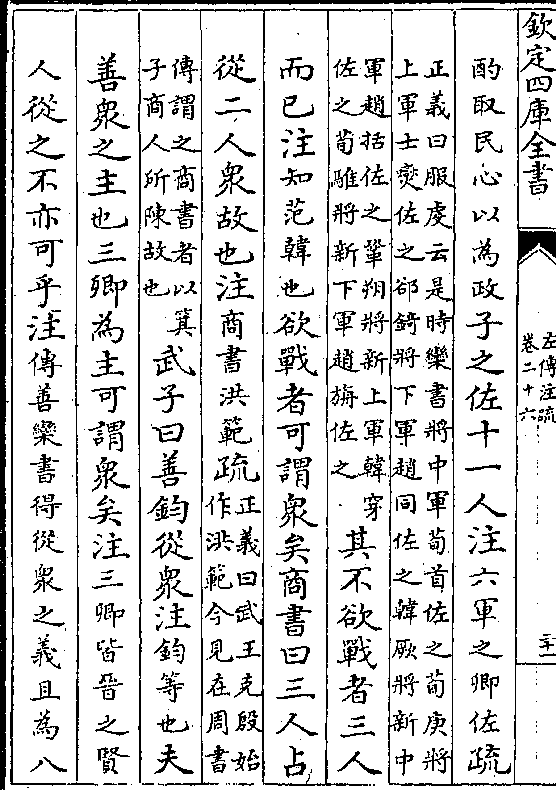 欽定四庫全書
左傳注疏
卷二十六
三十一
酌取民心以為政子之佐十一人注六軍之卿佐疏
正義曰服虔云是時欒書將中軍荀首佐之荀庚將
上軍士燮佐之郤錡將下軍趙同佐之韓厥將新中
軍趙括佐之鞏朔將新上軍韓穿
佐之荀騅將新下軍趙旃佐之
其不欲戰者三人
而已注知范韓也欲戰者可謂衆矣商書曰三人占
從二人衆故也注商書洪範疏
正義曰武王克殷始
作洪範今見在周書
傳謂之商書者以箕
子商人所陳故也
武子曰善鈞從衆注鈞等也夫
善衆之主也三卿為主可謂衆矣注三卿皆晉之賢
人從之不亦可乎注傳善欒書得從衆之義且為八